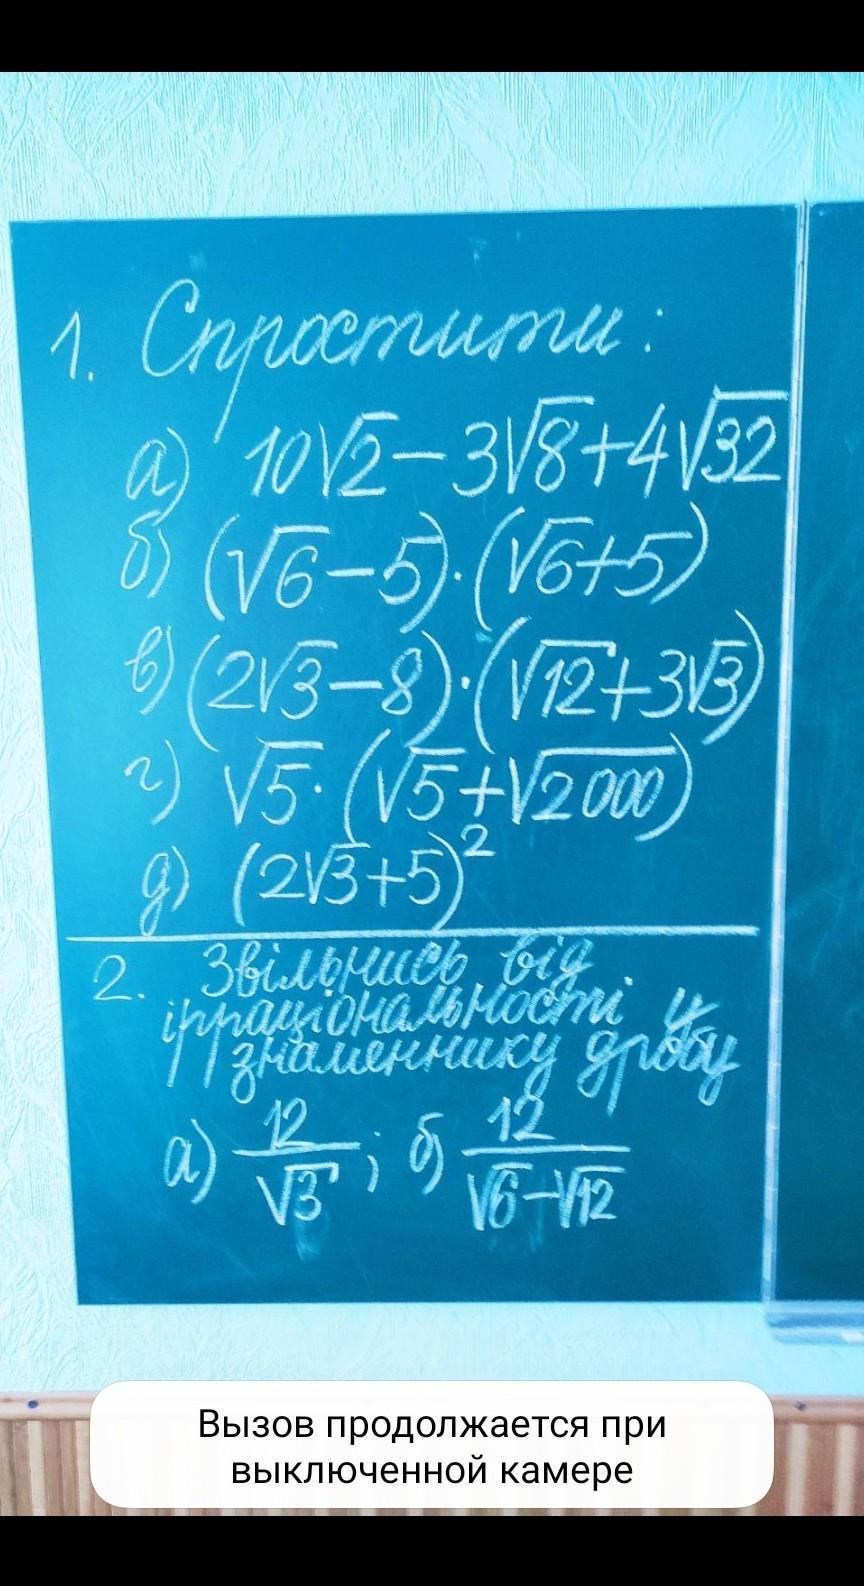 1. Спростити:
а) 10√2 − 3√8 + 4√32
б) (√6 − 5)·(√6 + 5)
в) (2√3 − 8)·(√12 + 3√3)
г) √5·(√5 + √2000)
д) (2√3 + 5)²
2. Звільнись від
ірраціональності у
знаменнику дробу
а) 12/√3 ; б) 12/(√6 − √12)
Вызов продолжается при
выключенной камере